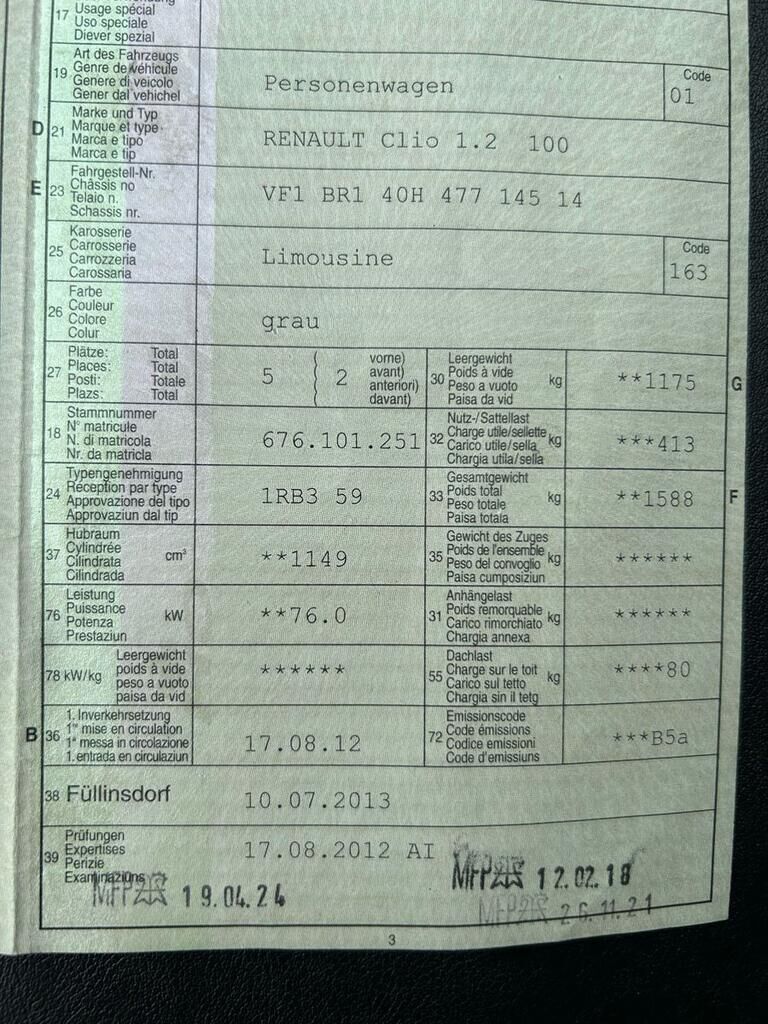 17 Usage spécial
Uso speciale
Diever spezial
19 Art des Fahrzeugs
Genre de véhicule
Genere di veicolo
Gener dal vehichel
Personenwagen
Code
01
D 21 Marke und Typ
Marque et type
Marca e tipo
Marca e tip
RENAULT Clio 1.2 100
E 23 Fahrgestell-Nr.
Châssis no
Telaio n.
Schassis nr.
VF1 BR1 40H 477 145 14
25 Karosserie
Carrosserie
Carrozzeria
Carossaria
Limousine
Code
163
26 Farbe
Couleur
Colore
Colur
grau
27 Plätze: Total
Places: Total
Posti: Totale
Plazs: Total
5 ( 2 vorne)
avant)
anteriori)
davant)
30 Leergewicht
Poids à vide
Peso a vuoto
Paisa da vid
kg
**1175
G
18 Stammnummer
N° matricule
N. di matricola
Nr. da matricla
676.101.251
32 Nutz-/Sattellast
Charge utile/sellette
Carico utile/sella
Chargia utila/sella
kg
***413
24 Typengenehmigung
Réception par type
Approvazione del tipo
Approvaziun dal tip
1RB3 59
33 Gesamtgewicht
Poids total
Peso totale
Paisa totala
kg
**1588
F
37 Hubraum
Cylindrée
Cilindrata
Cilindrada
cm³
**1149
35 Gewicht des Zuges
Poids de l'ensemble
Peso del convoglio
Paisa cumposiziun
kg
******
76 Leistung
Puissance
Potenza
Prestaziun
kW
**76.0
31 Anhängelast
Poids remorquable
Carico rimorchiato
Chargia annexa
kg
******
78 kW/kg Leergewicht
poids à vide
peso a vuoto
paisa da vid
******
55 Dachlast
Charge sur le toit
Carico sul tetto
Chargia sin il tetg
kg
****80
B 36 1. Inverkehrsetzung
1re mise en circulation
1a messa in circolazione
1. entrada en circulaziun
17.08.12
72 Emissionscode
Code émissions
Codice emissioni
Code d'emissiuns
***B5a
38 Füllinsdorf
10.07.2013
39 Prüfungen
Expertises
Perizie
Examinaziuns
17.08.2012 AI
MFP 12.02.18
MFP 19.04.24
MFP 26.11.21
3